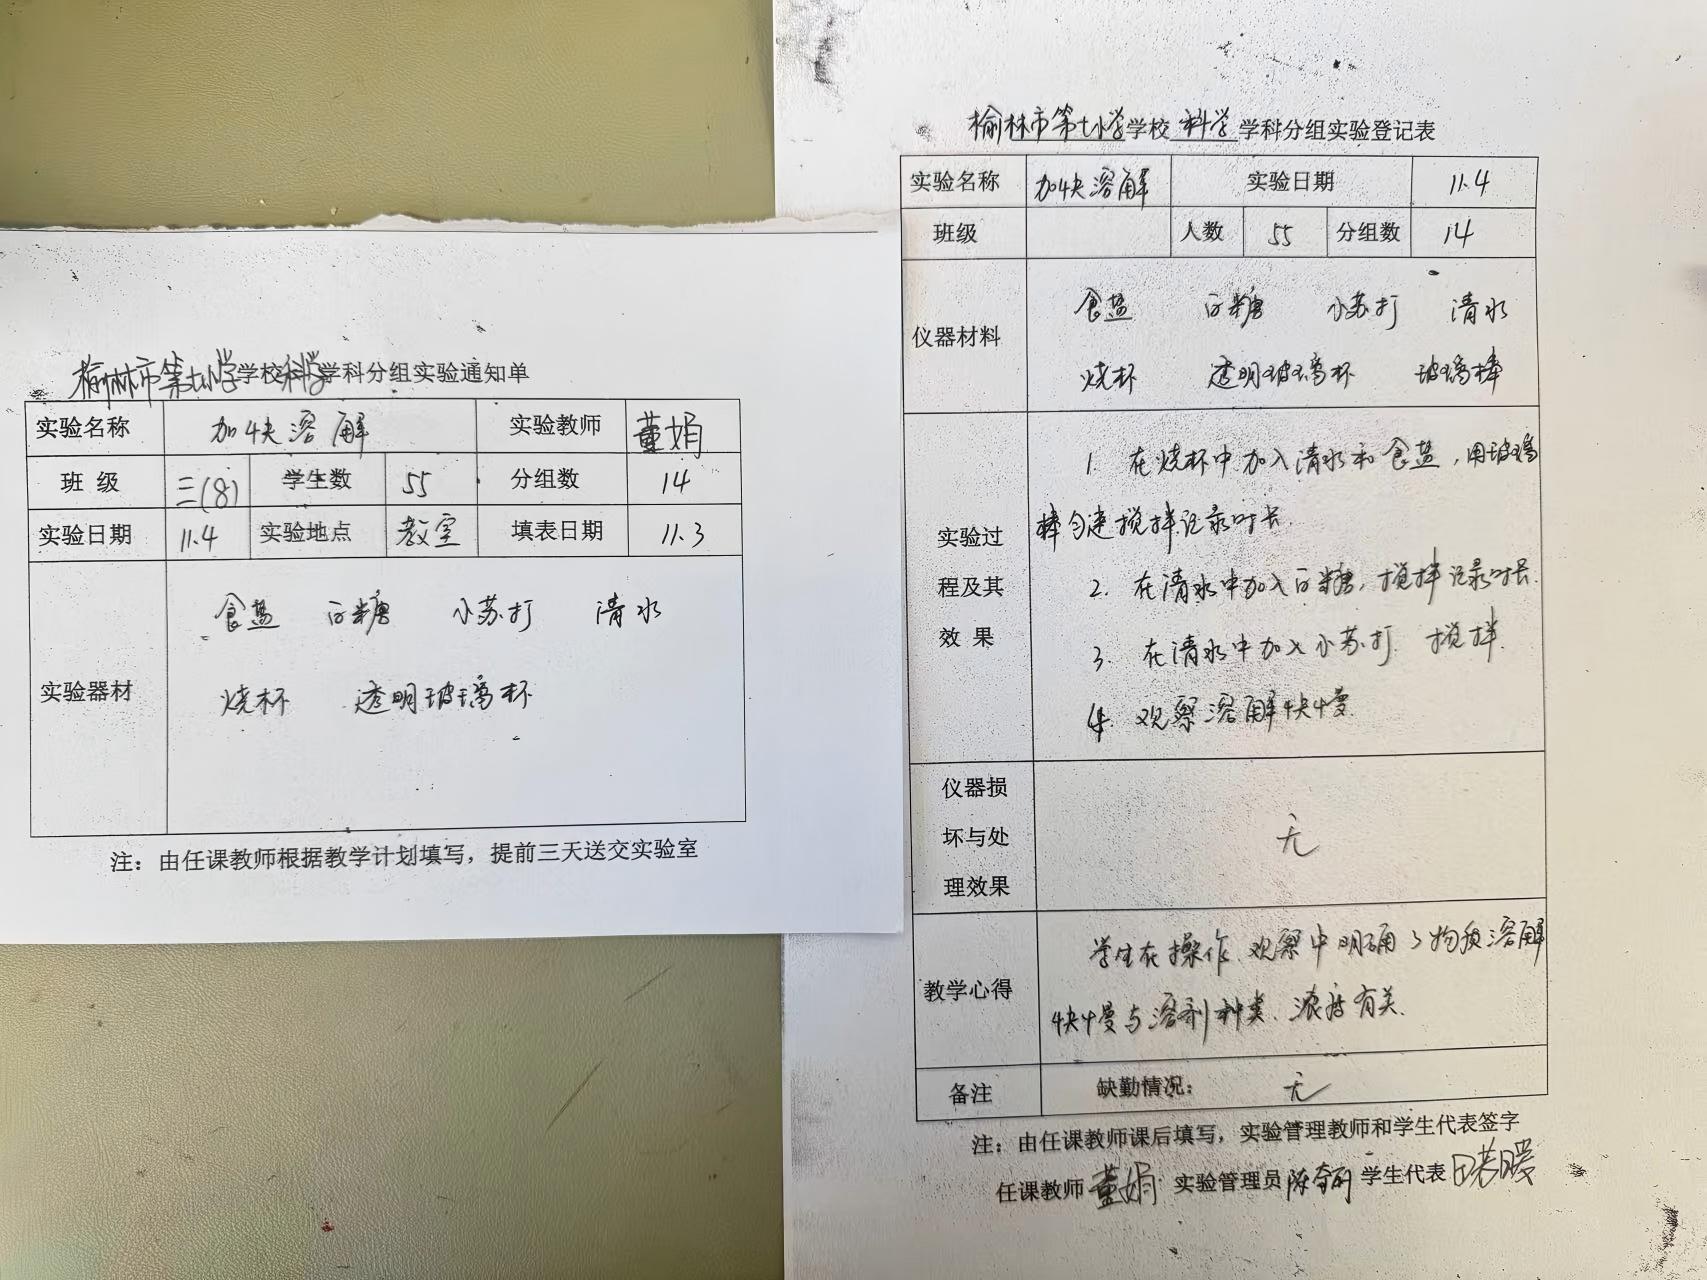 榆林市第七小学学校科学学科分组实验通知单
实验名称 加快溶解 实验教师 董娟
班 级 三(8) 学生数 55 分组数 14
实验日期 11.4 实验地点 教室 填表日期 11.3
实验器材
食盐 白糖 小苏打 清水
烧杯 透明玻璃杯
注：由任课教师根据教学计划填写，提前三天送交实验室
榆林市第七小学学校 科学 学科分组实验登记表
实验名称 加快溶解 实验日期 11.4
班级 人数 55 分组数 14
仪器材料
食盐 白糖 小苏打 清水
烧杯 透明玻璃杯 玻璃棒
实验过
程及其
效 果
1. 在烧杯中加入清水和食盐，用玻璃
棒匀速搅拌记录时长.
2. 在清水中加入白糖，搅拌记录时长.
3. 在清水中加入小苏打 搅拌.
4. 观察溶解快慢.
仪器损
坏与处
理效果
无
教学心得
学生在操作、观察中明确了物质溶解
快慢与溶剂种类、浓度有关.
备注 缺勤情况： 无
注：由任课教师课后填写，实验管理教师和学生代表签字
任课教师 董娟 实验管理员 学生代表